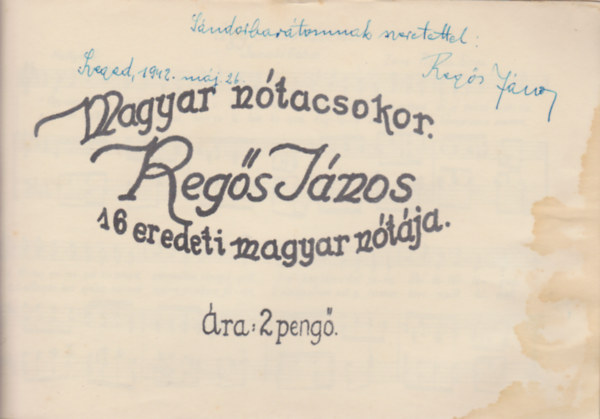 Sándorbarátomnak szeretettel:
Regős János
Szeged, 1942. máj. 26.
Magyar nótacsokor.
Regős János
16 eredeti magyar nótája.
Ára: 2 pengő.